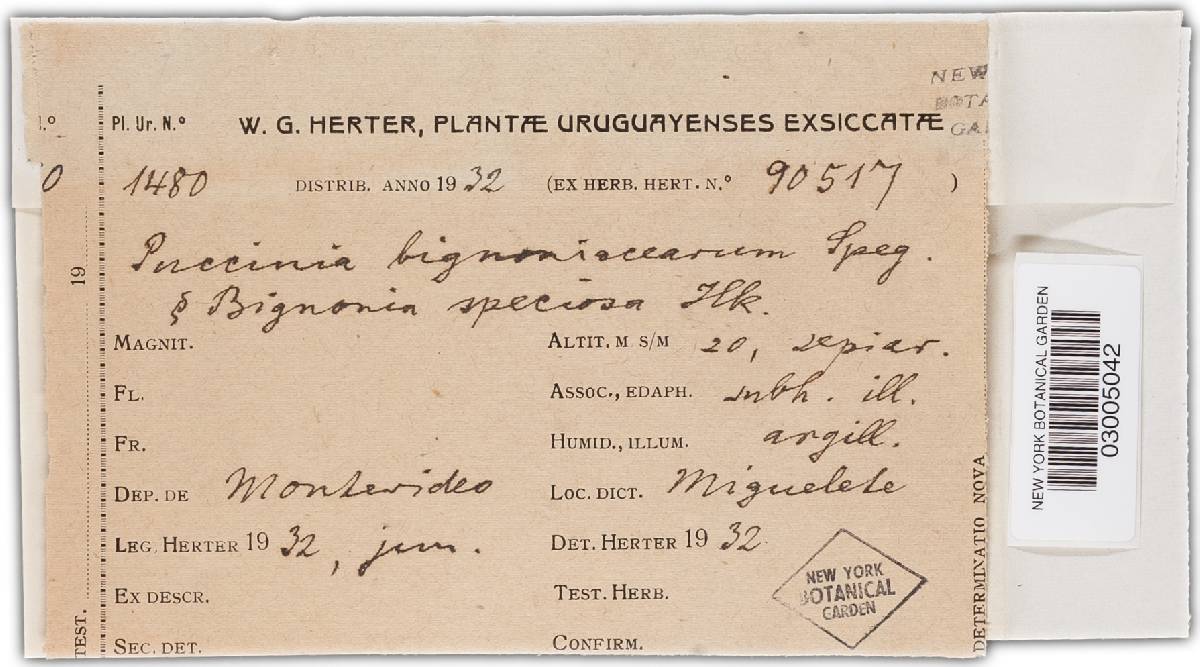 NEW
BOTA
GA
Pl. Ur. N.º W. G. HERTER, PLANTÆ URUGUAYENSES EXSICCATÆ
0 1480 DISTRIB. ANNO 1932 (EX HERB. HERT. N.º 90517)
Puccinia bignoniacearum Speg.
Bignonia speciosa Hk.
MAGNIT. ALTIT. M S/M 20, sepiar.
FL. ASSOC., EDAPH. subh. ill.
FR. HUMID., ILLUM. argill.
DEP. DE Montevideo LOC. DICT. Miguelete
LEG. HERTER 1932, jun. DET. HERTER 1932
EX DESCR. TEST. HERB.
SEC. DET. CONFIRM.
NEW YORK
BOTANICAL
GARDEN
19
TEST.
DETERMINATIO NOVA
NEW YORK BOTANICAL GARDEN
03005042